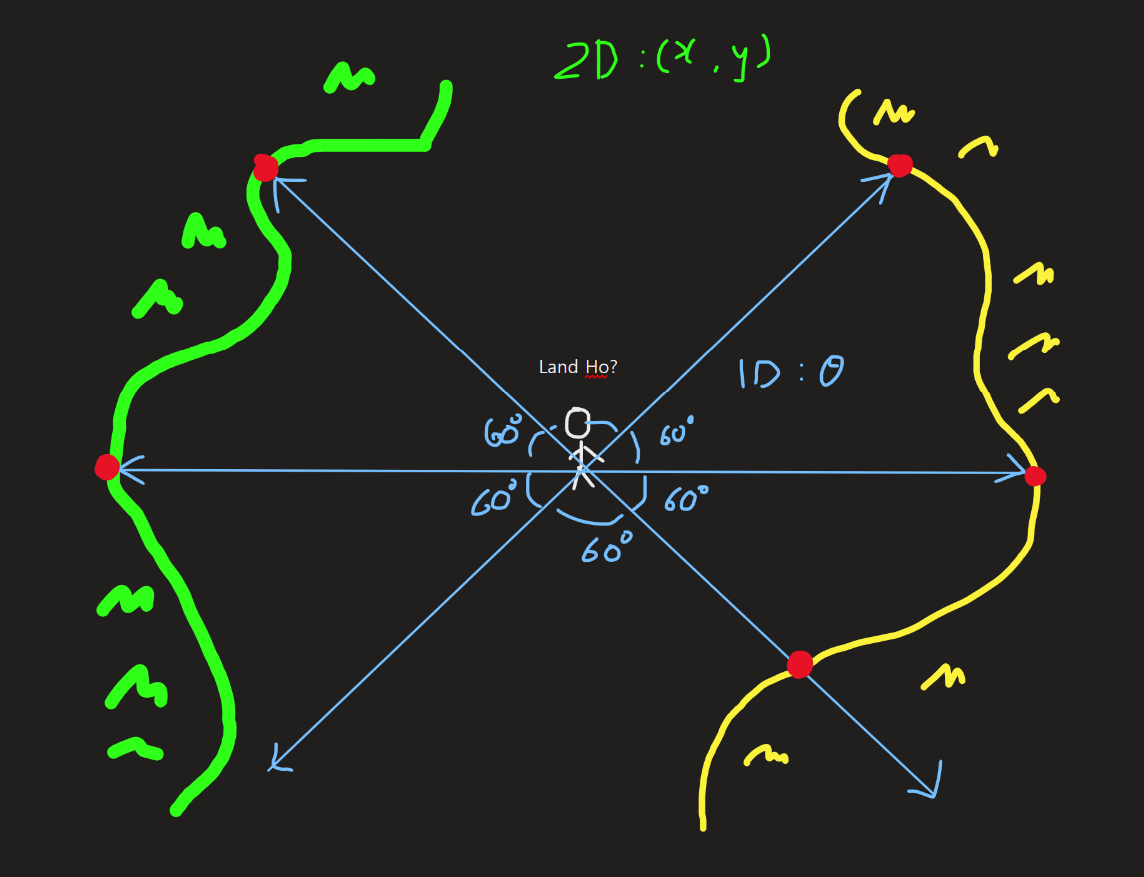 2D : (x , y)
Land Ho?
1D : θ
60°
60°
60°
60°
60°